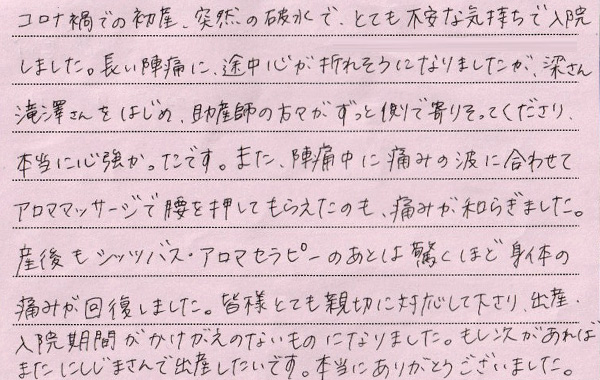 コロナ禍での初産、突然の破水で、とても不安な気持ちで入院
しました。長い陣痛に、途中心が折れそうになりましたが、梁さん
滝澤さんをはじめ、助産師の方々がずっと側で寄りそってくださり、
本当に心強かったです。また、陣痛中に痛みの波に合わせて
アロママッサージで腰を押してもらえたのも、痛みが和らぎました。
産後もシッツバス・アロマセラピーのあとは驚くほど身体の
痛みが回復しました。皆様とても親切に対応して下さり、出産・
入院期間がかけがえのないものになりました。もし次があれば
またにしじまさんで出産したいです。本当にありがとうございました。